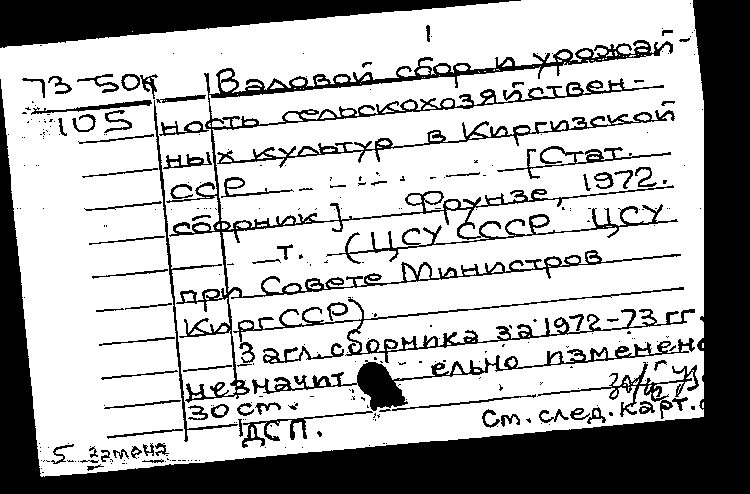 1
73-50к Валовой сбор и урожай-
105 ность сельскохозяйствен-
ных культур в Киргизской
ССР. [Стат.
сборник]. Фрунзе, 1972.
т. (ЦСУ СССР ЦСУ
при Совете Министров
КиргССР).
Загл. сборника за 1972-73 гг.
незначит ельно изменено
30 ст.
ДСП. Ст. след. карт.
5 замена